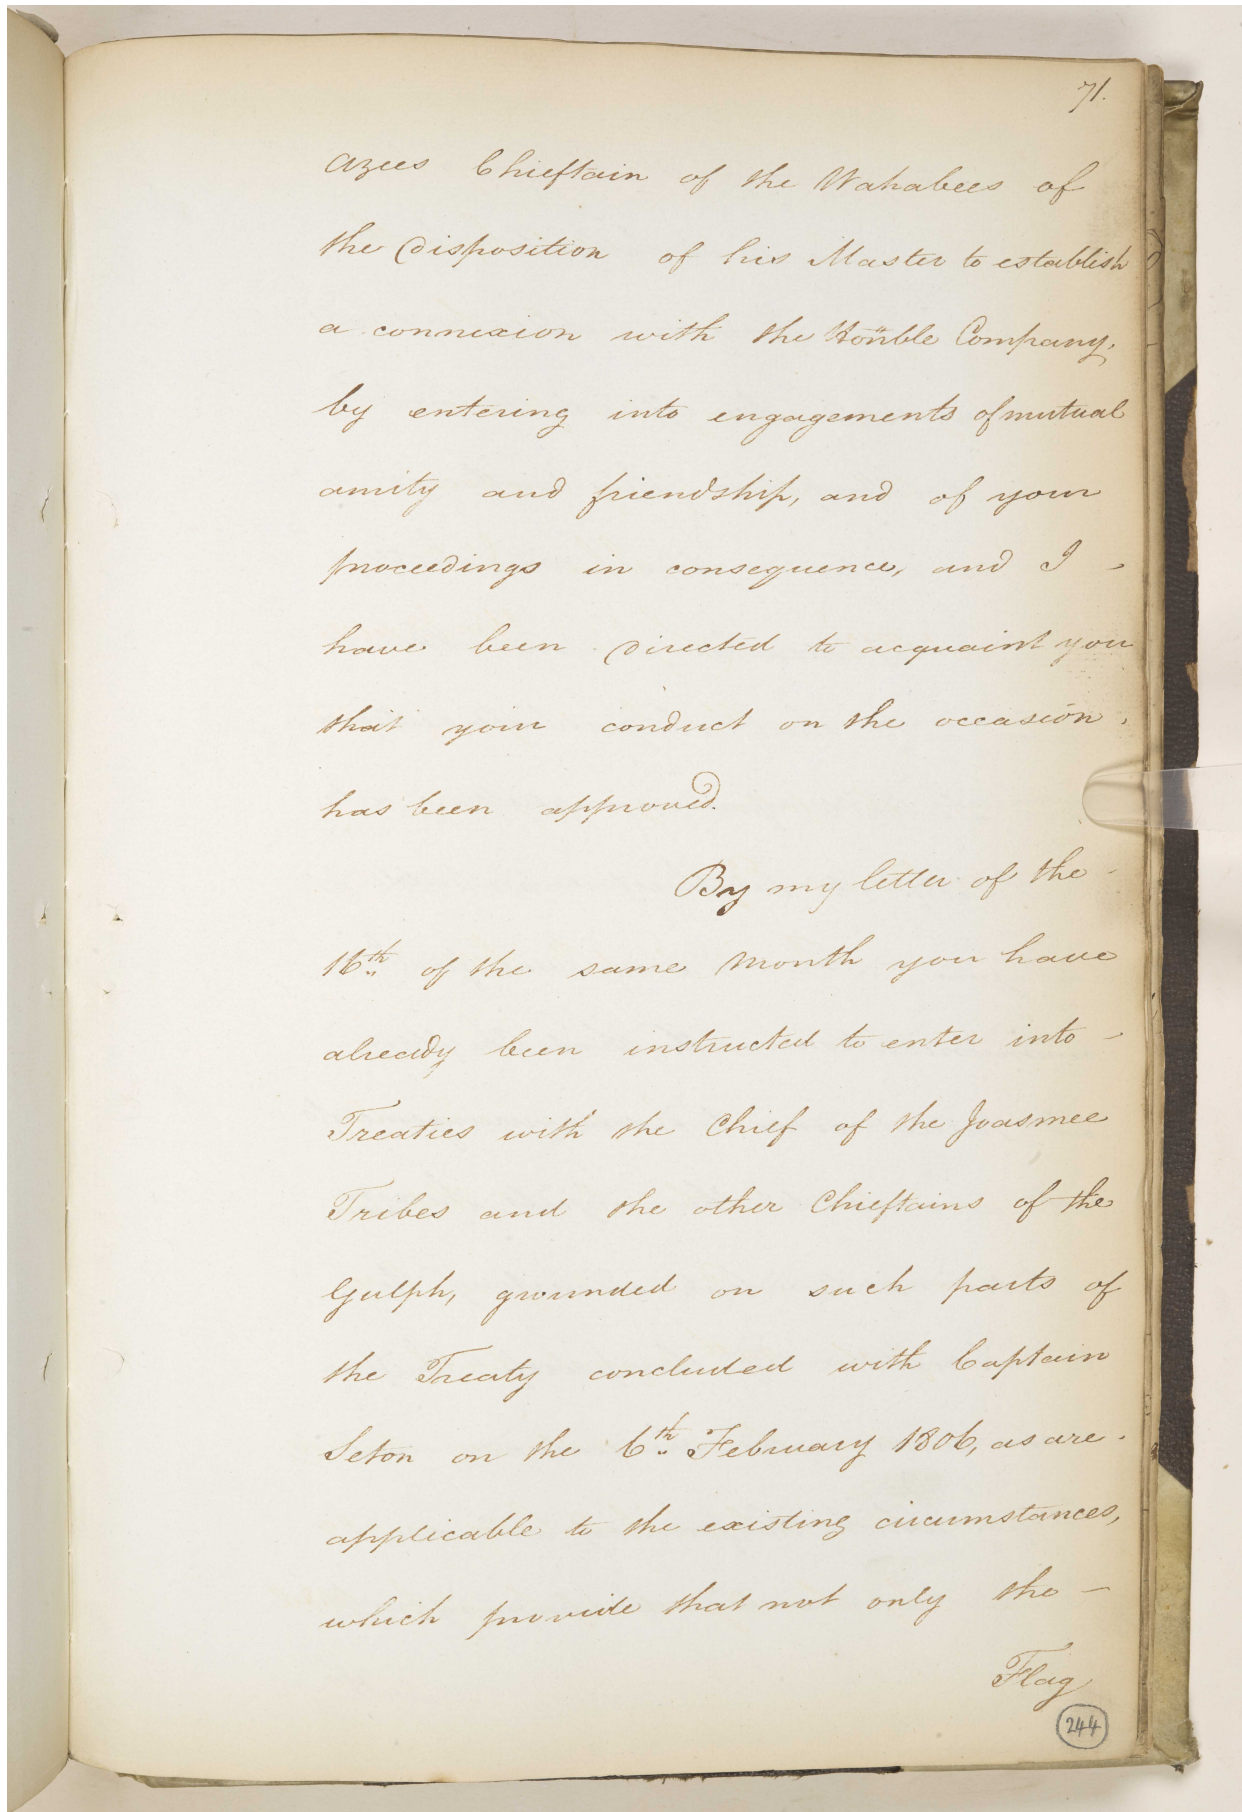 71.
azees Chieftain of the Wahabees of
the disposition of his Master to establish
a connexion with the Honble Company,
by entering into engagements of mutual
amity and friendship, and of your
proceedings in consequence, and I -
have been directed to acquaint you
that your conduct on the occasion,
has been approved.
By my letter of the -
16th of the same Month you have
already been instructed to enter into -
Treaties with the Chief of the Joasmee
Tribes and the other Chieftains of the
Gulph, grounded on such parts of
the Treaty concluded with Captain
Seton on the 6th February 1806, as are
applicable to the existing circumstances,
which provide that not only the -
Flag
244